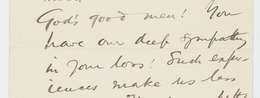 God's good men! You
have our deep sympathy
in your loss! Such exper
iences make us less